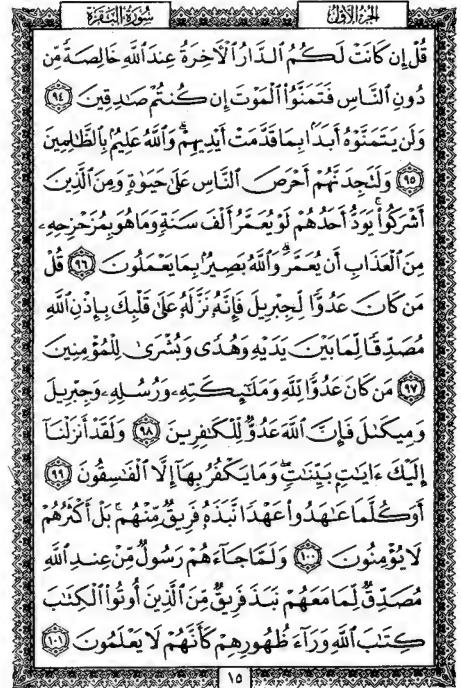 الجزء الأول سورة البقرة
قُلْ إِن كَانَتْ لَكُمُ ٱلدَّارُ ٱلْأَخِرَةُ عِندَ ٱللَّهِ خَالِصَةً مِّن
دُونِ ٱلنَّاسِ فَتَمَنَّوُاْ ٱلْمَوْتَ إِن كُنتُمْ صَٰدِقِينَ ٩٤
وَلَن يَتَمَنَّوْهُ أَبَدَۢا بِمَا قَدَّمَتْ أَيْدِيهِمْۗ وَٱللَّهُ عَلِيمُۢ بِٱلظَّٰلِمِينَ
٩٥ وَلَتَجِدَنَّهُمْ أَحْرَصَ ٱلنَّاسِ عَلَىٰ حَيَوٰةٍ وَمِنَ ٱلَّذِينَ
أَشْرَكُواْۚ يَوَدُّ أَحَدُهُمْ لَوْ يُعَمَّرُ أَلْفَ سَنَةٍ وَمَا هُوَ بِمُزَحْزِحِهِۦ
مِنَ ٱلْعَذَابِ أَن يُعَمَّرَۗ وَٱللَّهُ بَصِيرُۢ بِمَا يَعْمَلُونَ ٩٦ قُلْ
مَن كَانَ عَدُوًّا لِّجِبْرِيلَ فَإِنَّهُۥ نَزَّلَهُۥ عَلَىٰ قَلْبِكَ بِإِذْنِ ٱللَّهِ
مُصَدِّقًا لِّمَا بَيْنَ يَدَيْهِ وَهُدًى وَبُشْرَىٰ لِلْمُؤْمِنِينَ
٩٧ مَن كَانَ عَدُوًّا لِّلَّهِ وَمَلَٰٓئِكَتِهِۦ وَرُسُلِهِۦ وَجِبْرِيلَ
وَمِيكَىٰلَ فَإِنَّ ٱللَّهَ عَدُوٌّ لِّلْكَٰفِرِينَ ٩٨ وَلَقَدْ أَنزَلْنَآ
إِلَيْكَ ءَايَٰتٍۭ بَيِّنَٰتٍۖ وَمَا يَكْفُرُ بِهَآ إِلَّا ٱلْفَٰسِقُونَ ٩٩
أَوَكُلَّمَا عَٰهَدُواْ عَهْدًا نَّبَذَهُۥ فَرِيقٌ مِّنْهُمۚ بَلْ أَكْثَرُهُمْ
لَا يُؤْمِنُونَ ١٠٠ وَلَمَّا جَآءَهُمْ رَسُولٌ مِّنْ عِندِ ٱللَّهِ
مُصَدِّقٌ لِّمَا مَعَهُمْ نَبَذَ فَرِيقٌ مِّنَ ٱلَّذِينَ أُوتُواْ ٱلْكِتَٰبَ
كِتَٰبَ ٱللَّهِ وَرَآءَ ظُهُورِهِمْ كَأَنَّهُمْ لَا يَعْلَمُونَ ١٠١
١٥